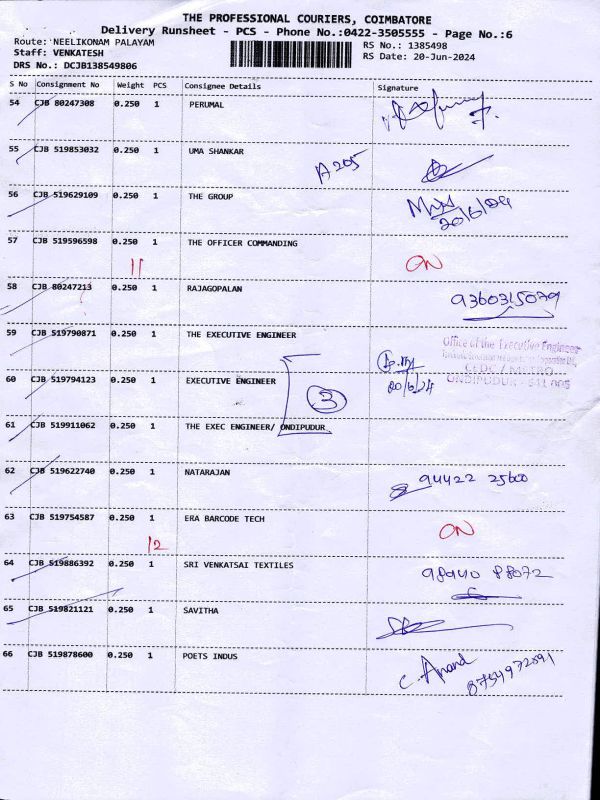 THE PROFESSIONAL COURIERS, COIMBATORE
Delivery Runsheet - PCS - Phone No.:0422-3505555 - Page No.:6
Route: NEELIKONAM PALAYAM
Staff: VENKATESH
DRS No.: DCJB138549806
RS No.: 1385498
RS Date: 20-Jun-2024
S No Consignment No Weight PCS Consignee Details Signature
54 CJB 80247308 0.250 1 PERUMAL
55 CJB 519853032 0.250 1 UMA SHANKAR A 205
56 CJB 519629109 0.250 1 THE GROUP
20/6/24
57 CJB 519596598 0.250 1 THE OFFICER COMMANDING ON
11
58 CJB 80247213 0.250 1 RAJAGOPALAN 9360315079
59 CJB 519790871 0.250 1 THE EXECUTIVE ENGINEER
Office of the Executive Engineer
60 CJB 519794123 0.250 1 EXECUTIVE ENGINEER 20/6/24
3
ONDIPUDUR - 641 005
61 CJB 519911062 0.250 1 THE EXEC ENGINEER/ ONDIPUDUR
62 CJB 519622740 0.250 1 NATARAJAN 94422 25600
63 CJB 519754587 0.250 1 ERA BARCODE TECH ON
12
64 CJB 519886392 0.250 1 SRI VENKATSAI TEXTILES 98940 88072
65 CJB 519821121 0.250 1 SAVITHA
66 CJB 519878600 0.250 1 POETS INDUS C. Anand